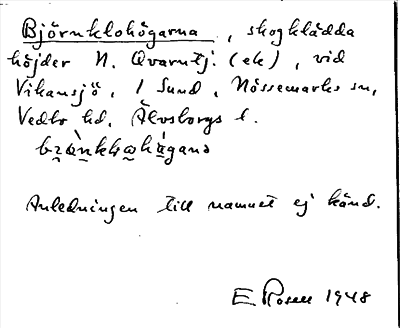 Björnklohögarna, skogklädda
höjder N. Qvarntj. (ek), vid
Vikansjö, 1 Sund, Nössemarks sn,
Vedbo hd, Älvsborgs l.
Anledningen till namnet ej känd.
E Rosell 1948